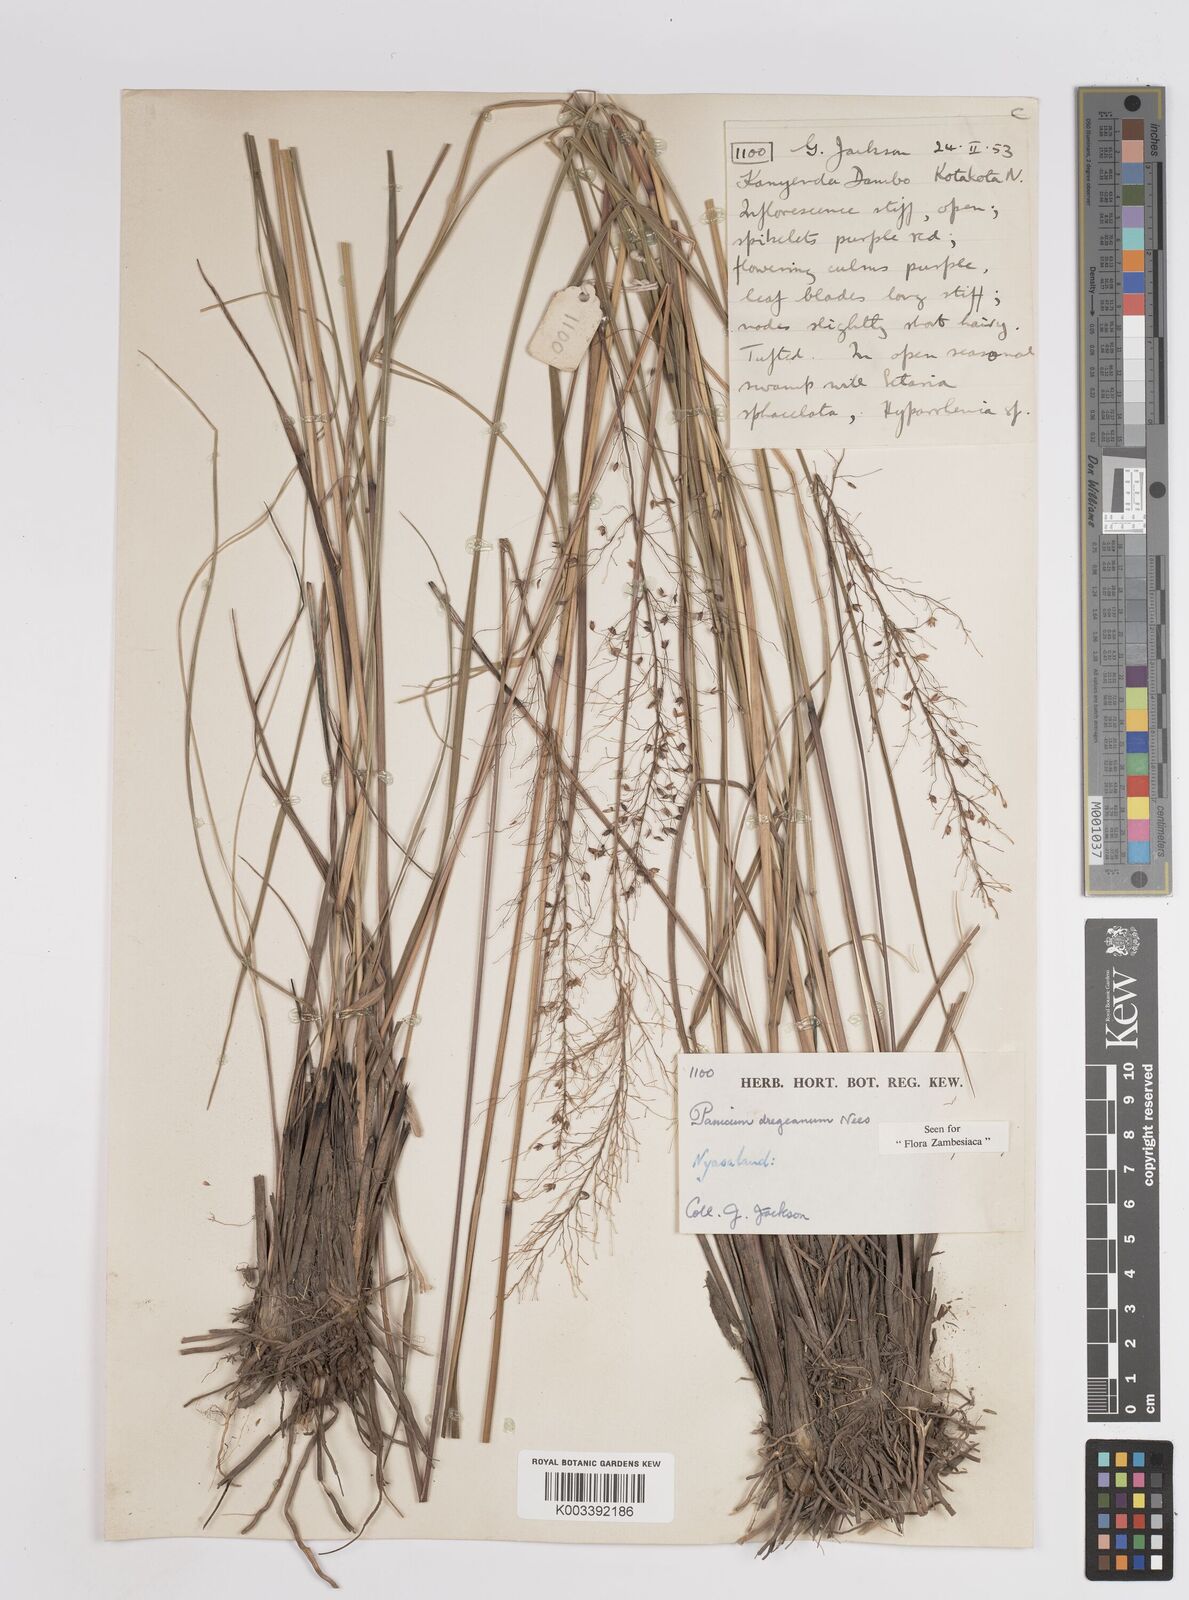 C
1100 G. Jackson 24·II·53
Kanyenda Dambo Kotakota N.
Inflorescence stiff, open;
spikelets purple red;
flowering culms purple,
leaf blades long stiff;
nodes slightly short hairy.
Tufted. In open seasonal
swamp with Setaria
sphacelata, Hyparrhenia sp.
1100
1100
HERB. HORT. BOT. REG. KEW.
Panicum dregeanum Nees
Seen for
"Flora Zambesiaca"
Nyasaland:
Coll. G. Jackson
ROYAL BOTANIC GARDENS KEW
K003392186
inches
Density
Don Williams
M001037
centimeters
Royal Botanic Gardens
Kew
0 1 2 3 4 5 6 7 8 9 10
cm
copyright reserved